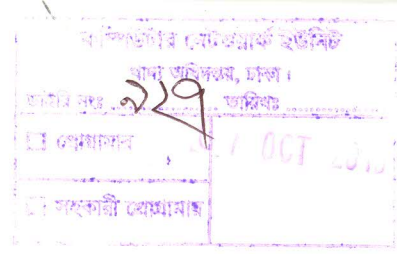 কম্পিউটার নেটওয়ার্ক ইউনিট
খাদ্য অধিদপ্তর, ঢাকা।
ডাইরি নংঃ ৯২৭ তারিখঃ
প্রোগ্রামার
সহকারী প্রোগ্রামার